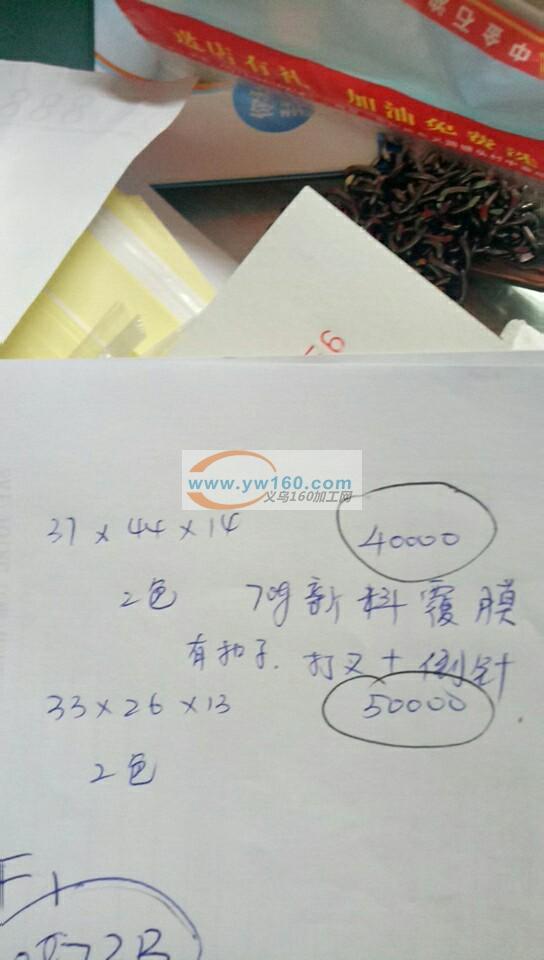 888
送店有礼 加油免费洗
中金石油
96
www.yw160.com
义乌160加工网
37×44×14 40000
2色 70g新料覆膜
有扣子. 打叉+倒针
33×26×13 50000
2色